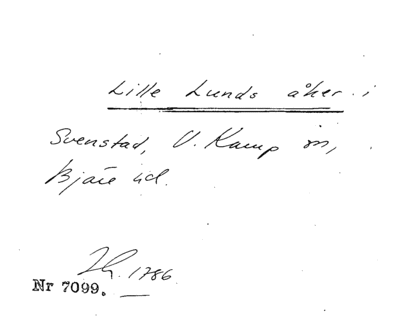 Lille Lunds åker i
Svenstad, V. Karup sn,
Bjäre hd.
Lh. 1786
Nr 7099.